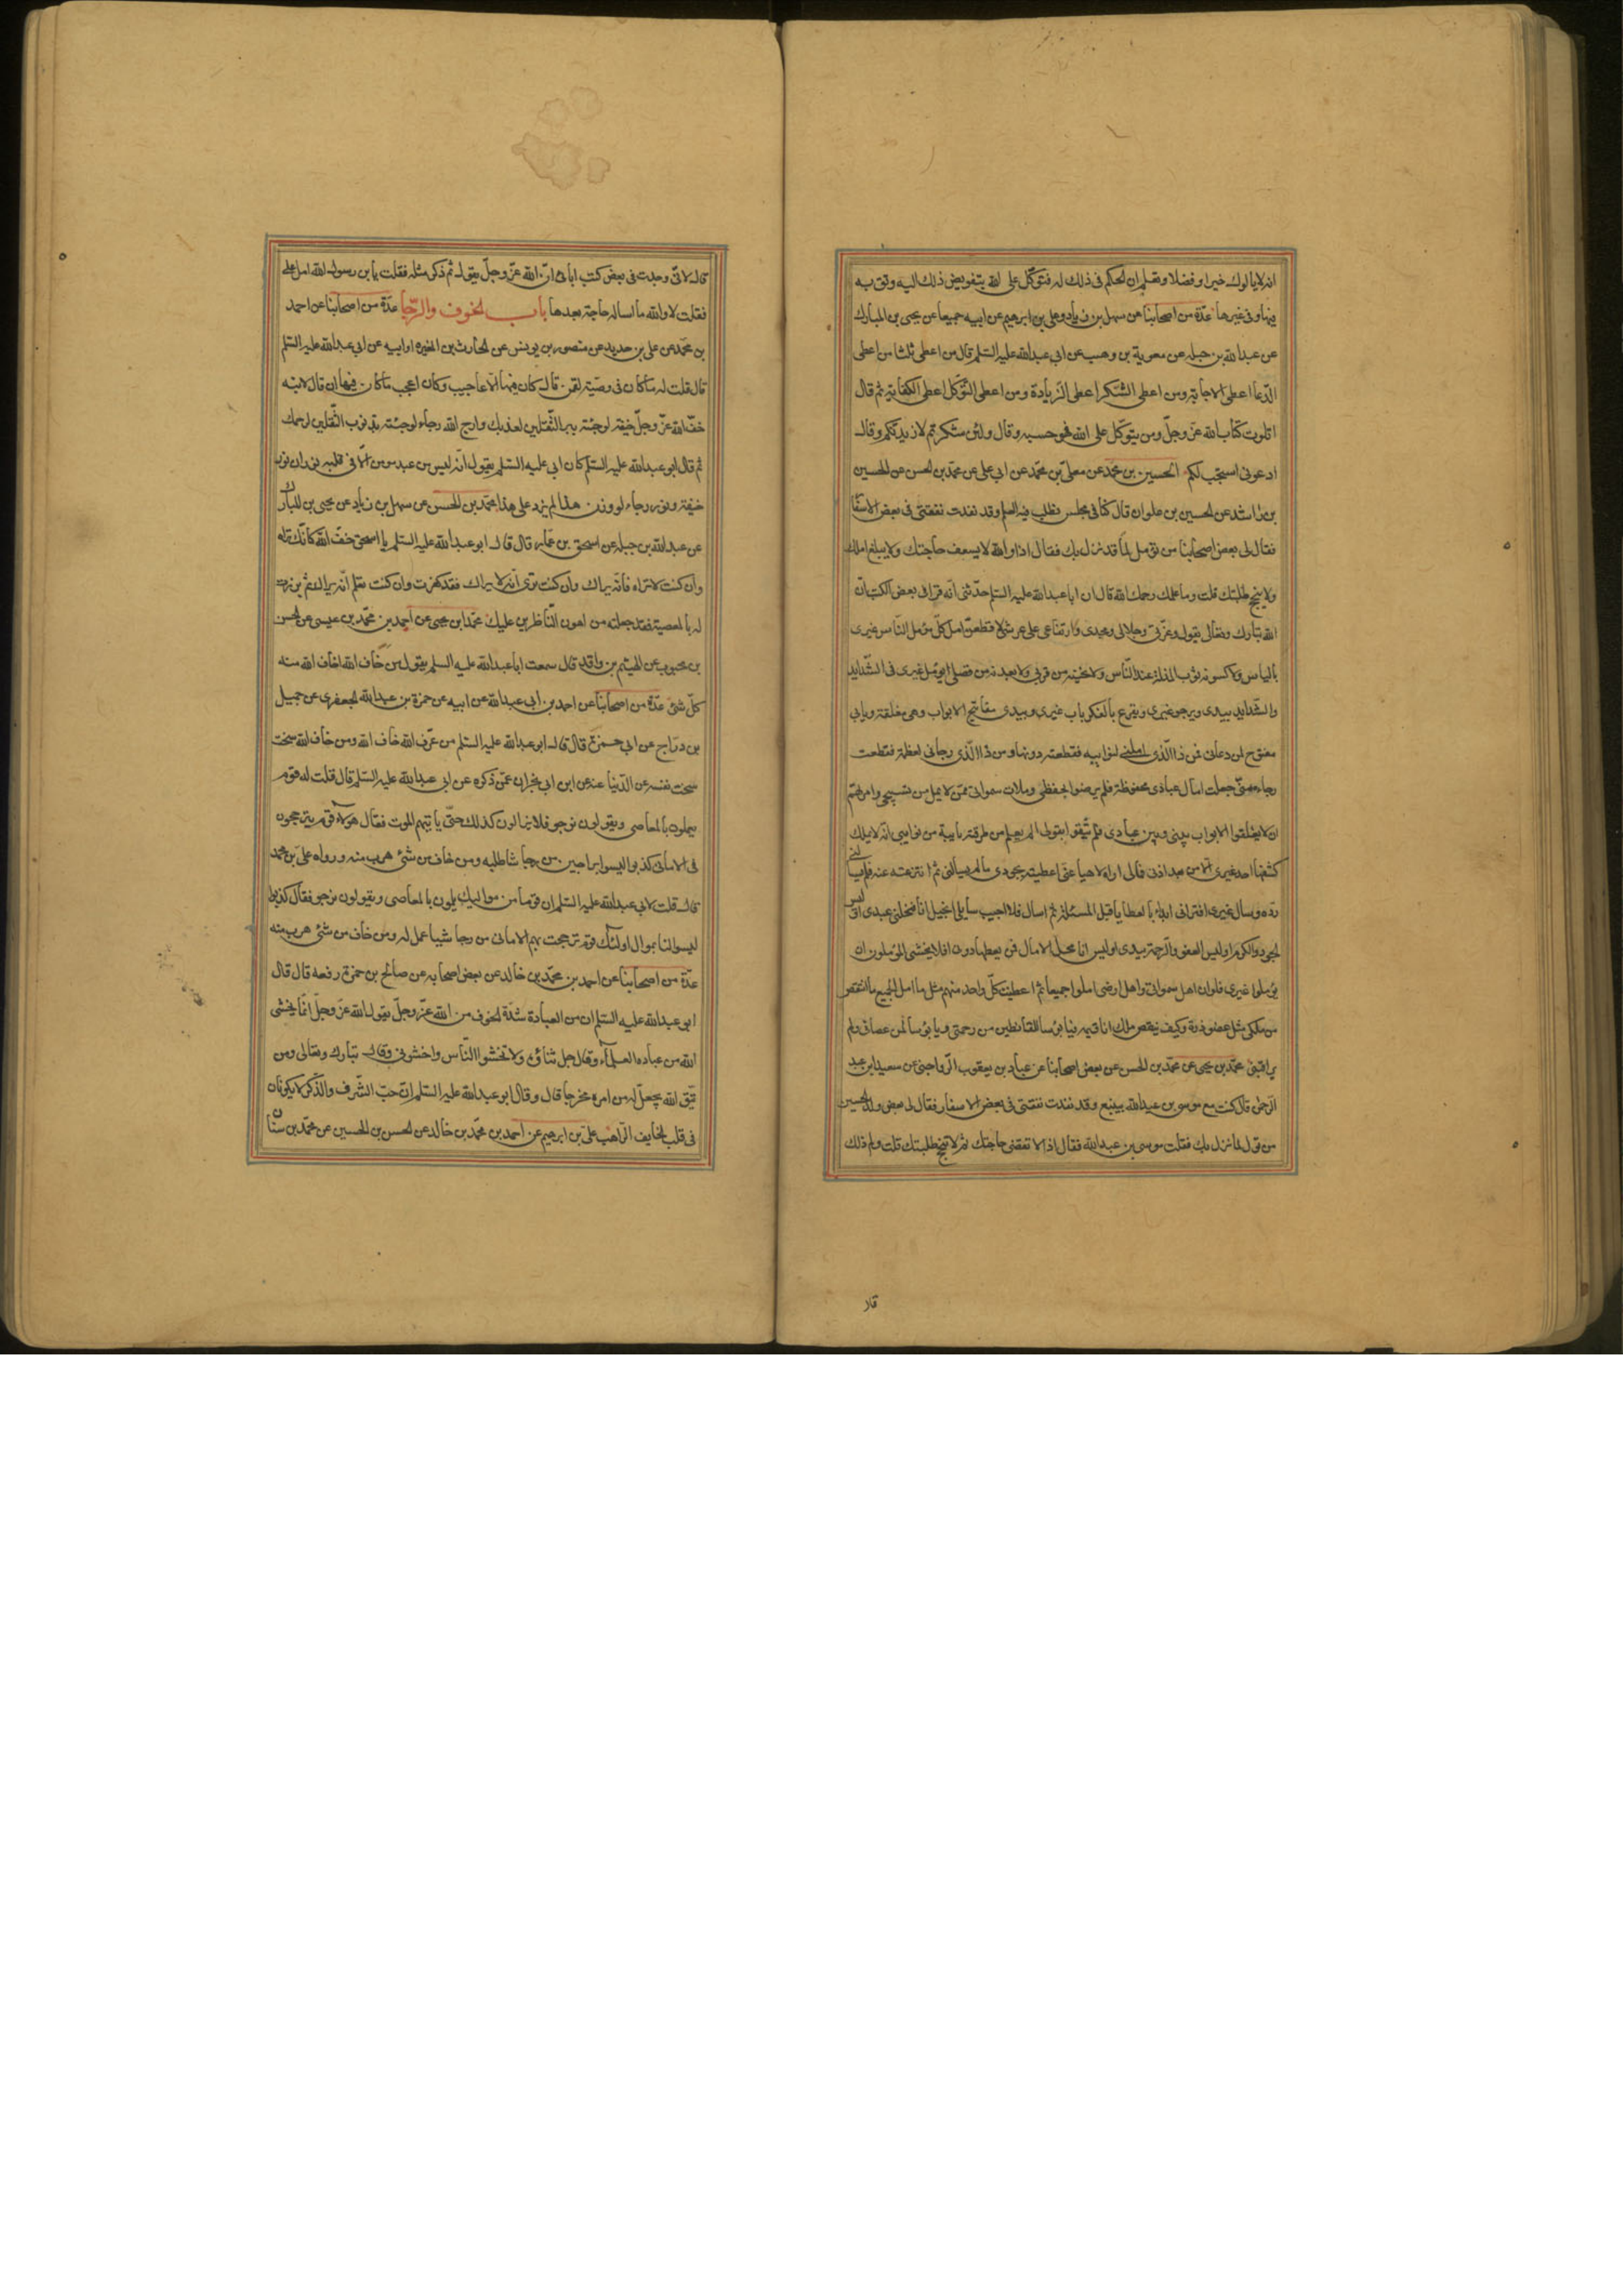 انه لا يالوك خيرا و فضلا و تعلم ان الحكم فى ذلك له فتوكّل على الله بتفويض ذلك اليه وثق به
فيها و فى غيرها عدّة من اصحابنا عن سهل بن زياد وعلى بن ابرهيم عن ابيه جميعا عن يحيى بن المبارك
عن عبد الله بن جبله عن معوية بن وهب عن ابى عبد الله عليه السّلم قال من اعطى ثلثا من اعطى
الدّعا اعطى الاجابة ومن اعطى الشّكر اعطى الزّيادة ومن اعطى التّوكّل اعطى الكفاية ثم قال
اتلوت كتاب الله عزّ وجلّ ومن يتوكّل على الله فهو حسبه وقال ولئن شكرتم لازيدنّكم وقال
ادعونى استجب لكم الحسين بن محمّد عن معلّى بن محمّد عن ابى على عن محمّد بن الحسن عن الحسين
بن راشد عن الحسين بن علوان قال كنّا فى مجلس نطلب فيه العلم وقد نفدت نفقتى فى بعض الاسفا
فقال لى بعض اصحابنا من تؤمل لما قد نزل بك فقال اذا والله لا يسعف حاجتك ولا يبلغ املك
ولا ينجح طلبتك قلت وما علمك رحمك الله قال ان ابا عبد الله عليه السّلم حدّثنى انّه قرا فى بعض الكتب انّ
الله تبارك وتعالى يقول وعزّتى وجلالى ومجدى وارتفاعى على عرشى لاقطعنّ امل كلّ مؤمل النّاس غيرى
بالياس ولاكسونه ثوب المذلة عند النّاس ولانحينه من قربى ولابعدنه من فضلى ايؤمل غيرى فى الشّدايد
والشّدايد بيدى ويرجو غيرى ويقرع بالفكر باب غيرى وبيدى مفاتيح الابواب وهى مغلقة وبابى
مفتوح لمن دعانى فمن ذا الّذى املنى لنوابيه فقطعته دونها ومن ذا الّذى رجانى لعظمة فقطعت
رجاءه منّى جعلت امال عبادى محفوظة فلم يرضوا بحفظى وملات سمواتى ممّن لا يمل من تسبيحى وامرتهم
ان لا يغلقوا الابواب بينى وبين عبادى فلم يثقوا بقولى الم يعلم من طرقته نايبة من نوايبى انّه لا يملك
كشفها احد غيرى الّا من بعد اذنى فمالى اراه لاهيا عنّى اعطيته بجودى مالم يسالنى ثم انتزعته عنه فلم يسالنى
ردّه وسأل غيرى افترانى ابدا بالعطايا قبل المسئلة ثم اسال فلا اجيب سايلى ابخيل انا فيبخلنى عبدى اوليس
الجود والكرم لى اوليس العفو والرّحمة بيدى اوليس انا محل الامال فمن يقطعها دونى افلا يخشى المؤملون ان
يؤملوا غيرى فلو ان اهل سمواتى واهل ارضى املوا جميعا ثم اعطيت كلّ واحد منهم مثل ما امل الجميع ما انتقص
من ملكى مثل عضو ذرة وكيف ينقص ملك انا قيمه فيا بؤسا للقانطين من رحمتى ويا بؤسا لمن عصانى ولم
يراقبنى محمّد بن يحيى عن محمّد بن الحسن عن بعض اصحابنا عن عباد بن يعقوب الرّواجنى عن سعيد بن عبد
الرّحمن قال كنت مع موسى بن عبد الله بينبع وقد نفدت نفقتى فى بعض الاسفار فقال لى بعض ولد الحسين
من تؤمل لما نزل بك فقلت موسى بن عبد الله فقال اذا لا تقضى حاجتك ثم لا تنجح طلبتك قلت ولم ذلك
قال
قال لانّى وجدت فى بعض كتب ابائى انّ الله عزّ وجلّ يقول ثم ذكر مثله فقلت يا بن رسول الله امل على
فقلت لا والله ما اساله حاجة بعدها باب الخوف والرّجا عدّة من اصحابنا عن احمد
بن محمّد عن على بن حديد عن منصور بن يونس عن الحارث بن المغيره او ابيه عن ابى عبد الله عليه السّلم
قال قلت له ما كان فى وصيّة لقمن قال كان فيها الاعاجيب وكان اعجب ما كان فيها ان قال لابنه
خف الله عزّ وجلّ خيفة لو جئته ببر الثّقلين لعذبك وارج الله رجاء لو جئته بذنوب الثّقلين لرحمك
ثم قال ابو عبد الله عليه السّلم كان ابى عليه السّلم يقول انّه ليس من عبد مومن الّا فى قلبه نوران نور
خيفة ونور رجاء لو وزن هذا لم يزد على هذا محمّد بن الحسن عن سهل بن زياد عن يحيى بن المبارك
عن عبد الله بن جبله عن اسحق بن عمّار قال قال ابو عبد الله عليه السّلم يا اسحق خف الله كانّك تراه
وان كنت لا تراه فانّه يراك وان كنت ترى انّه لا يراك فقد كفرت وان كنت تعلم انّه يراك ثم برزت
له بالمعصية فقد جعلته من اهون النّاظرين عليك محمّد ابن يحيى عن احمد بن محمّد بن عيسى عن الحسن
بن محبوب عن الهيثم بن واقد قال سمعت ابا عبد الله عليه السلم يقول من خاف الله اخاف الله منه
كلّ شئ عدّة من اصحابنا عن احمد بن ابى عبد الله عن ابيه عن حمزة بن عبد الله الجعفرى عن جميل
بن درّاج عن ابى حمزة قال قال ابو عبد الله عليه السّلم من عرف الله خاف الله ومن خاف الله سخت
سخت نفسه عن الدّنيا عنه عن ابن ابى نجران عمّن ذكره عن ابى عبد الله عليه السّلم قال قلت له قوم
يعملون بالمعاصى ويقولون نرجو فلا يزالون كذلك حتّى ياتيهم الموت فقال هولاء قوم يترجحون
فى الامانى كذبوا ليسوا براجين من رجا شيا طلبه ومن خاف من شئ هرب منه ورواه على بن محمّد
قال قلت لابى عبد الله عليه السّلم ان قوما من مواليك يلمون بالمعاصى ويقولون نرجو فقال كذبوا
ليسوا لنا بموال اولئك قوم ترجحت بهم الامانى من رجا شيا عمل له ومن خاف من شئ هرب منه
عدّة من اصحابنا عن احمد بن محمّد بن خالد عن بعض اصحابه عن صالح بن حمزة رفعه قال قال
ابو عبد الله عليه السّلم ان من العبادة شدّة الخوف من الله عزّ وجلّ يقول الله عزّ وجلّ انّما يخشى
الله من عباده العلماء وقال جل ثناؤه ولا تخشوا النّاس واخشونى وقال تبارك وتعالى ومن
يتّق الله يجعل له من امره مخرجا قال وقال ابو عبد الله عليه السّلم انّ حبّ الشّرف والذّكر لا يكونان
فى قلب الخايف الرّاهب على بن ابرهيم عن احمد بن محمّد بن خالد عن الحسن بن الحسين عن محمّد بن سنان